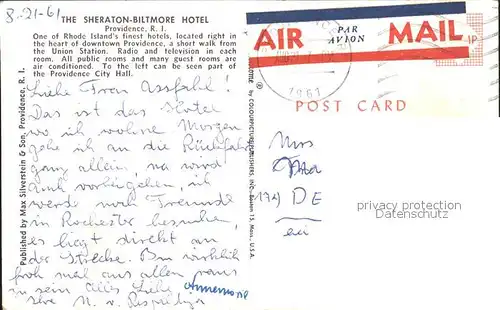 8-21-61
THE SHERATON-BILTMORE HOTEL
Providence, R. I.
One of Rhode Island's finest hotels, located right in
the heart of downtown Providence, a short walk from
the Union Station. Radio and television in each
room. All public rooms and many guest rooms are
air conditioned. To the left can be seen part of
the Providence City Hall.
Liebe Frau
Das ist das Hotel
wo ich wohne Morgen
gehe ich an die Rückfahrt
ganz allein, na wird
auch vorbeigehen, ich
werde noch Freunde
in Rochester besuchen,
es liegt direkt an
der Strecke. Bin wirklich
froh mal aus allem raus
zu sein Alles Liebe Annemone
Ihre
Published by Max Silverstein & Son, Providence, R. I.
by COLOURPICTURE PUBLISHERS, INC., Boston 15, Mass., U.S.A.
AIR PAR AVION MAIL
1961
POST CARD
Mrs
(174) DE
ansichtskarten-center.de